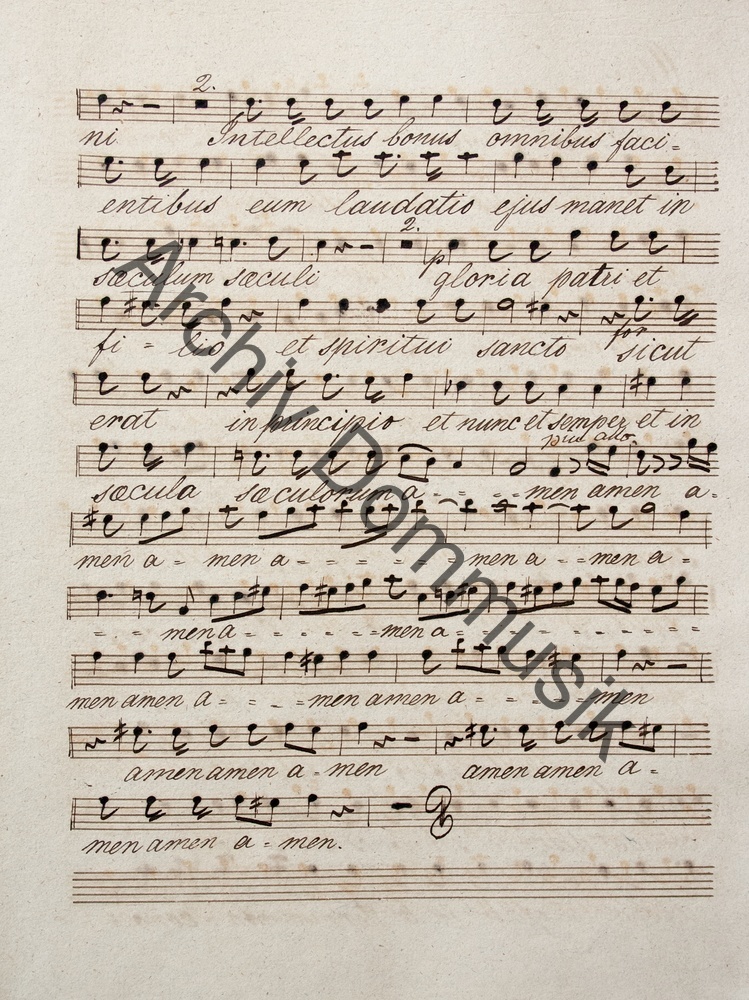 2.
ni Intellectus bonus omnibus faci=
entibus eum laudatio ejus manet in
2.
sæculum sæculi p gloria patri et
fi = lio et spiritui sancto for sicut
erat in principio et nunc et semper et in
piu allo.
sæcula sæculorum a - - - - men amen a=
men a - men a - - - - - - - men a - - men a =
- - - men a - - - - - - men a - - - - - - - -
men amen a - - - - men amen a - - - - men
amen amen a - men amen amen a =
men amen a - men.
Archiv Dommusik